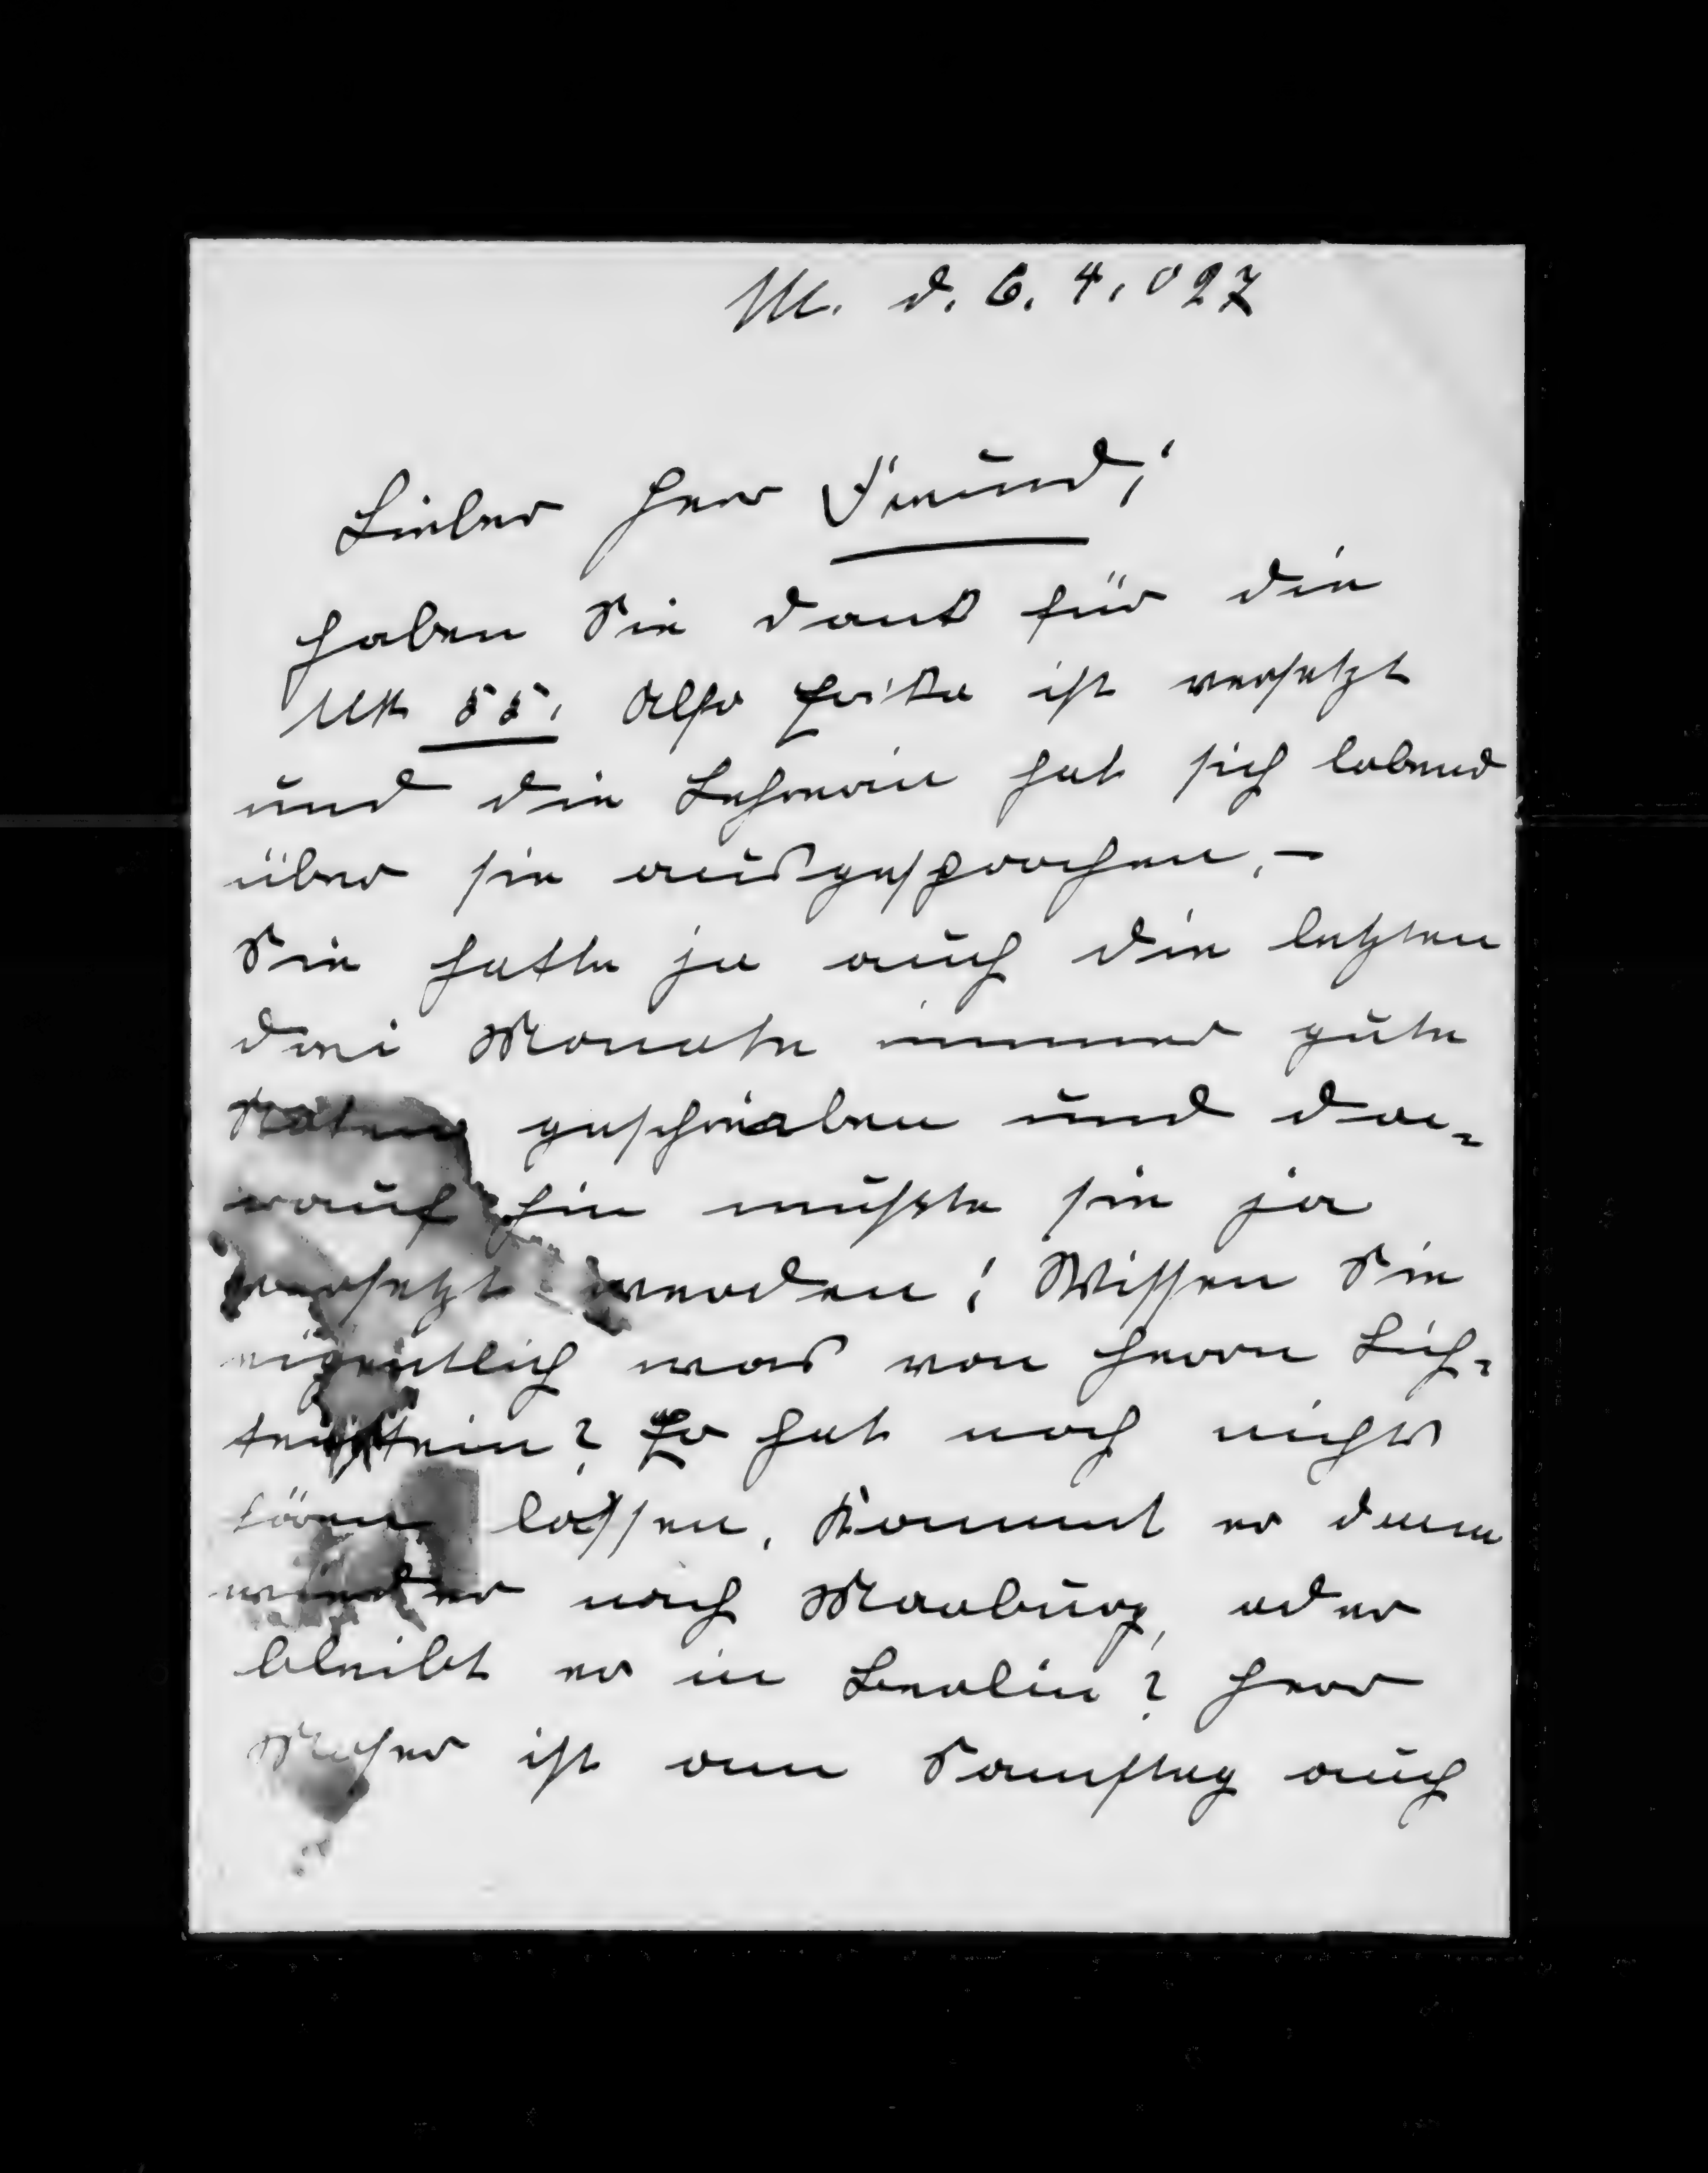 M. d. 6. 4. 027
Lieber Herr Freund!
Haben Sie Dank für die
Mk 55. Also Erika ist versetzt
und die Lehrerin hat sich lobend
über sie ausgesprochen. –
Sie hatte ja auch die letzten
drei Monate immer gute
Noten geschrieben und da-
rauf hin mußte sie ja
versetzt werden! Wissen Sie
eigentlich was von Herrn Lich-
tenstein? Er hat noch nichts
hören lassen. Kommt er denn
wieder nach Marburg, oder
bleibt er in Berlin? Herr
ist am Samstag auch